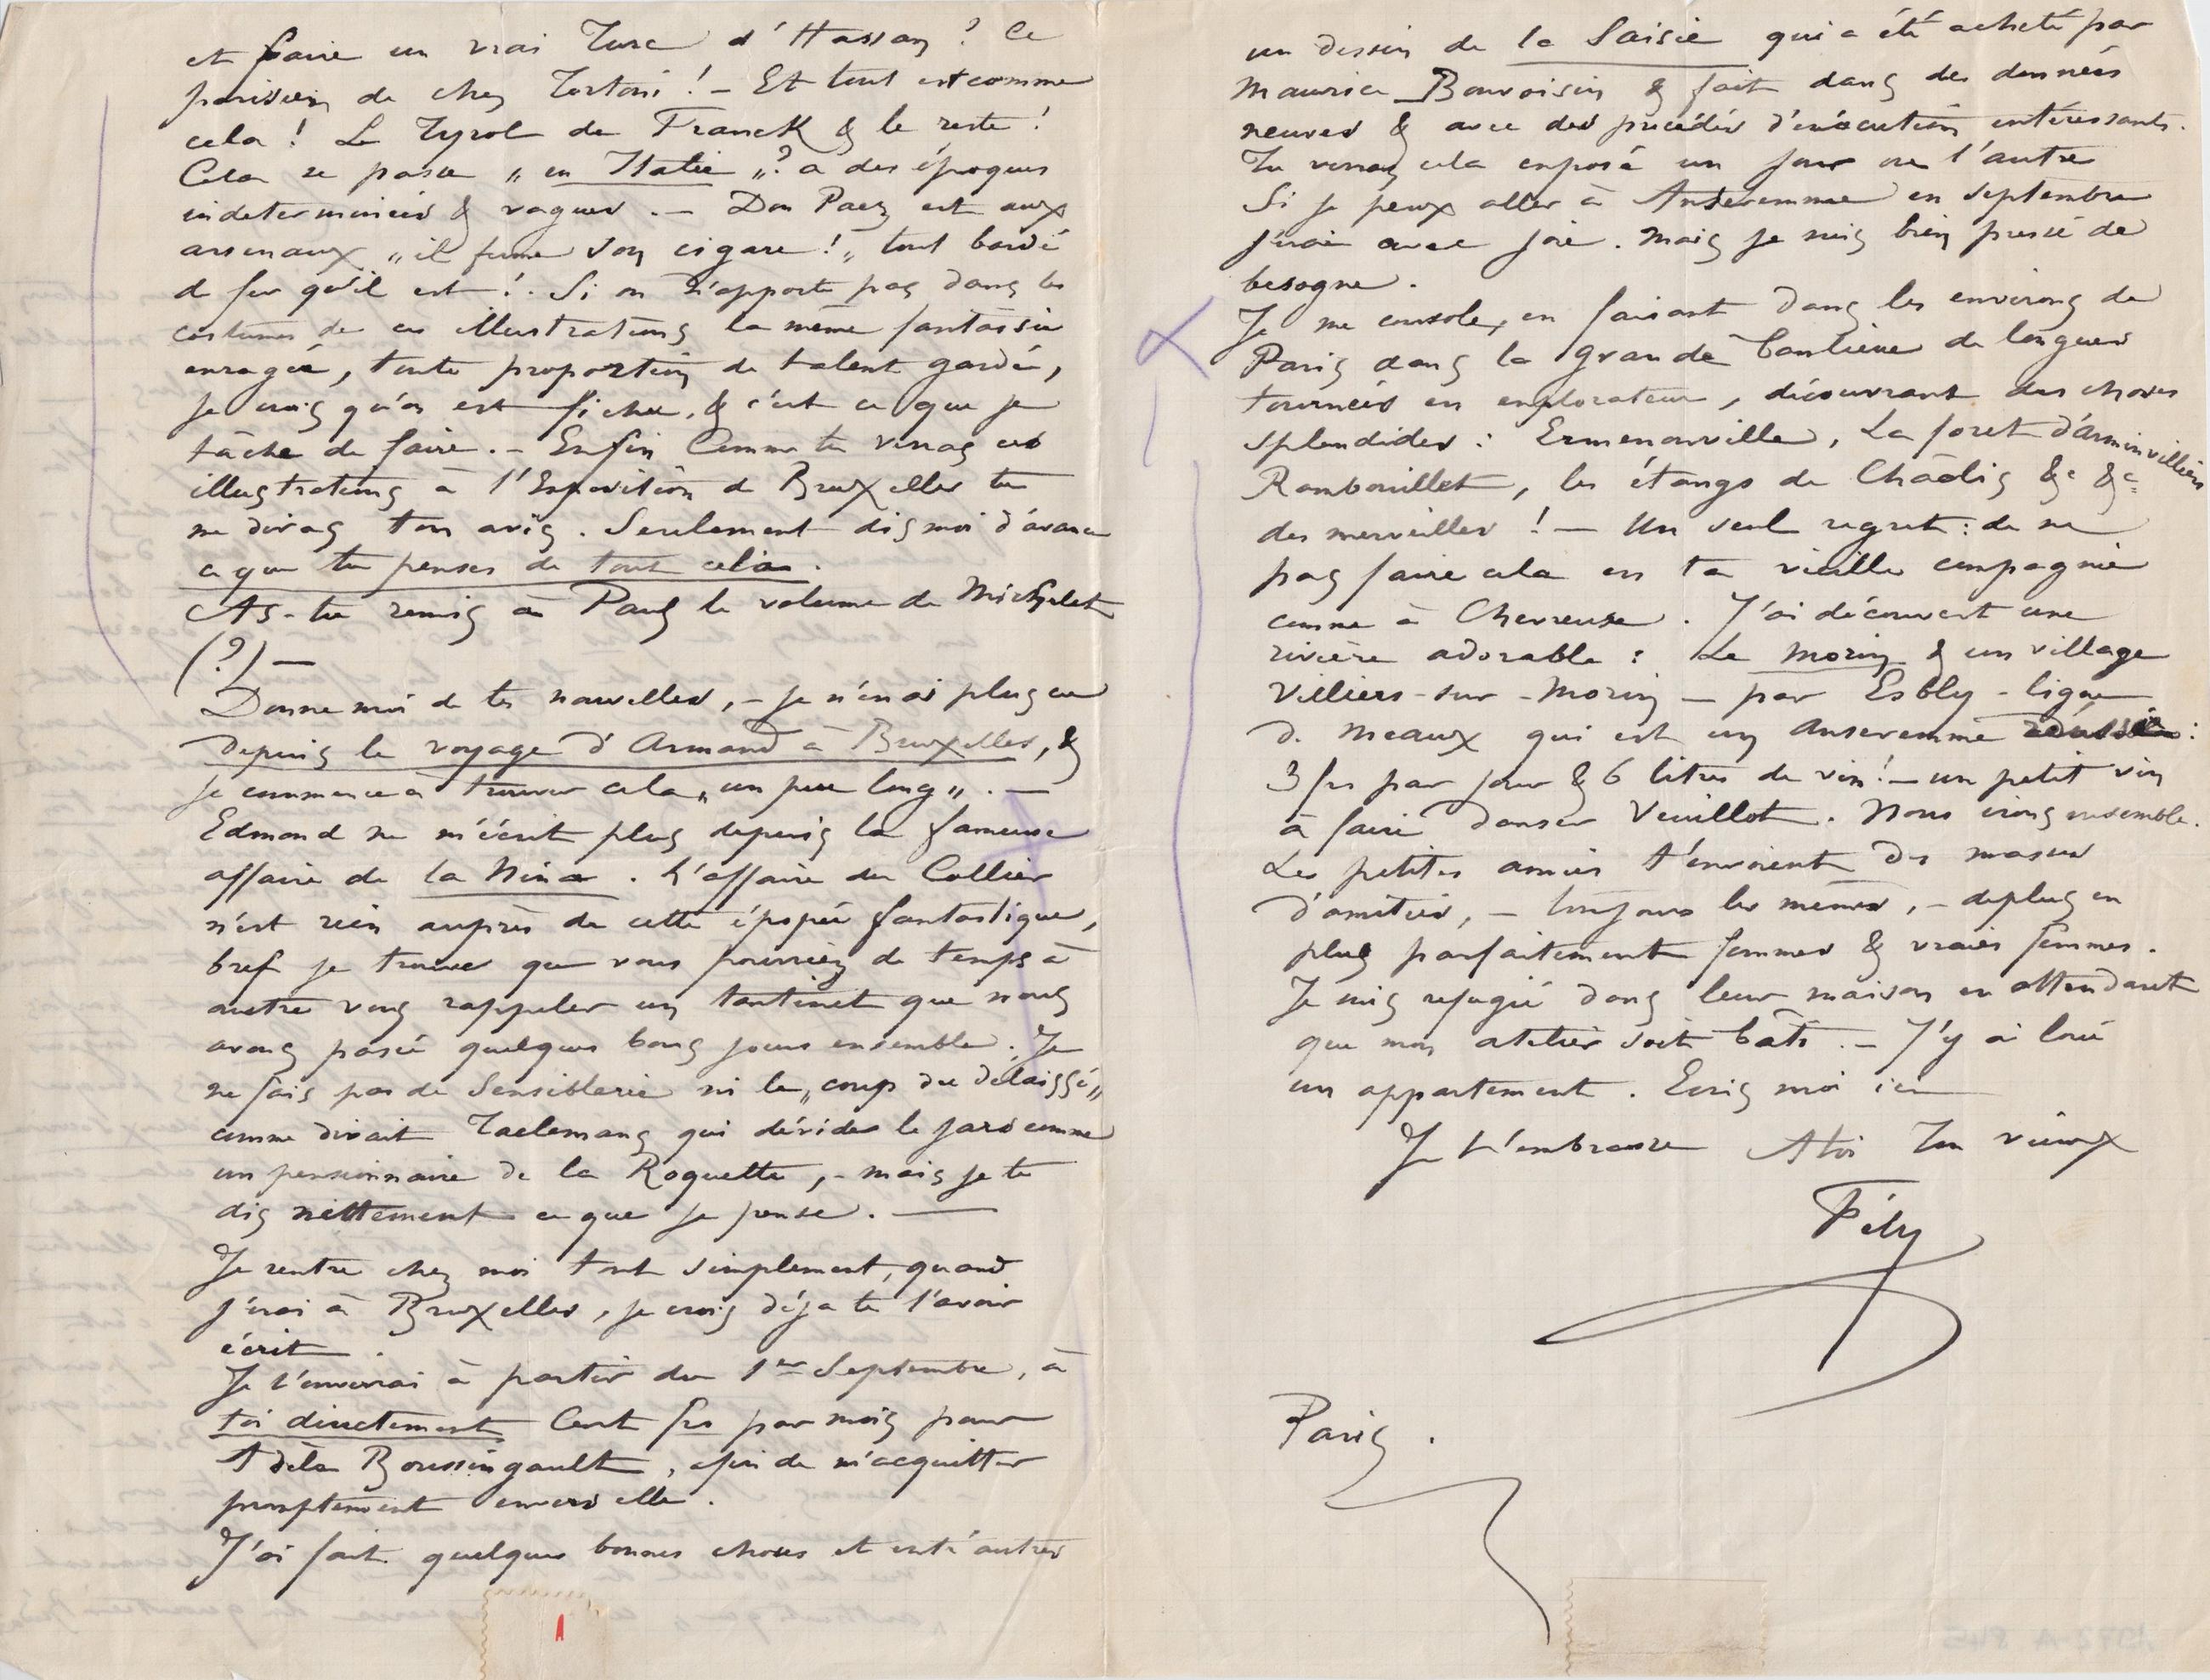 et faire un vrai Turc d'Hassan ? Ce
parisien de chez Tortoni ! – Et tout est comme
cela ! Le Tyrol de Franck & le reste !
Cela se passe „en Italie„? a des époques
indeterminées & vagues. – Don Paez est aux
arsenaux „il fume son cigare !„ tout bardé
de fer qu'il est ! Si on n'apporte pas dans les
costumes de ces illustrations la même fantaisie
enragée, toute proportion de talent gardée,
je crois qu'on est fichu, & c'est ce que je
tâche de faire. – Enfin Comme tu verras ces
illustrations à l'Exposition de Bruxelles tu
me diras ton avis. Seulement dis moi d'avance
ce que tu penses de tout cela.
As-tu remis à Paul le volume de Michelet
(?) –
Donne moi de tes nouvelles, – je n'en ai plus eu
depuis le voyage d'Armand à Bruxelles, &
je commence à trouver cela „un peu long„. –
Edmond ne m'écrit plus depuis la fameuse
affaire de la Nina. L'affaire du Collier
n'est rien auprès de cette épopée fantastique,
bref je trouve que vous pourriez de temps à
autre vous rappeler un tantinet que nous
avons passé quelques bons jours ensemble. Je
ne fais pas de Sensiblerie ni le „coup du délaissé„
comme dirait Taelemans qui dévide le jars comme
un pensionnaire de la Roquette, – mais je te
dis nettement ce que je pense. —
Je rentre chez moi tout simplement, quand
j'irai à Bruxelles, je crois déja te l'avoir
écrit.
Je t'enverrai à partir du 1er Septembre, à
toi directement Cent frs par mois pour
Adèle Boussingault, afin de m'acquitter
promptement envers elle.
J'ai fait quelques bonnes choses et entr'autres
un dessin de la Saisie qui a été acheté par
Maurice Bonvoisin & fait dans des données
neuves & avec des procédés d'exécution intéressants.
Tu verras cela exposé un jour ou l'autre
Si je peux aller à Anseremme en septembre
j'irai avec joie. Mais je suis bien pressé de
besogne.
Je me console, en faisant dans les environs de
Paris dans la grande banlieue de longues
tournées en explorateur, découvrant des choses
splendides : Ermenonville, La foret d'Arminvilliers
Rambouillet, les étangs de Châalis &c &c
des merveilles ! – Un seul regret : de ne
pas faire cela en ta vieille compagnie
comme à Chevreuse. J'ai découvert une
rivière adorable : Le Morin & un village
Villiers-sur-Morin – par Esbly – ligne
de Meaux qui est un Anseremme réussi :
3 frs par jour & 6 litres de vin ! – un petit vin
à faire danser Veuillot. Nous irons ensemble.
Les petites amies t'envoient des masses
d'amitiés, – toujours les mêmes, – de plus en
plus parfaitement femmes & vraies femmes.
Je suis refugié dans leur maison en attendant
que mon atelier soit bâti. – J'y ai loué
un appartement. Ecris moi ici
Je t'embrasse A toi Ton vieux
Fély
Paris.